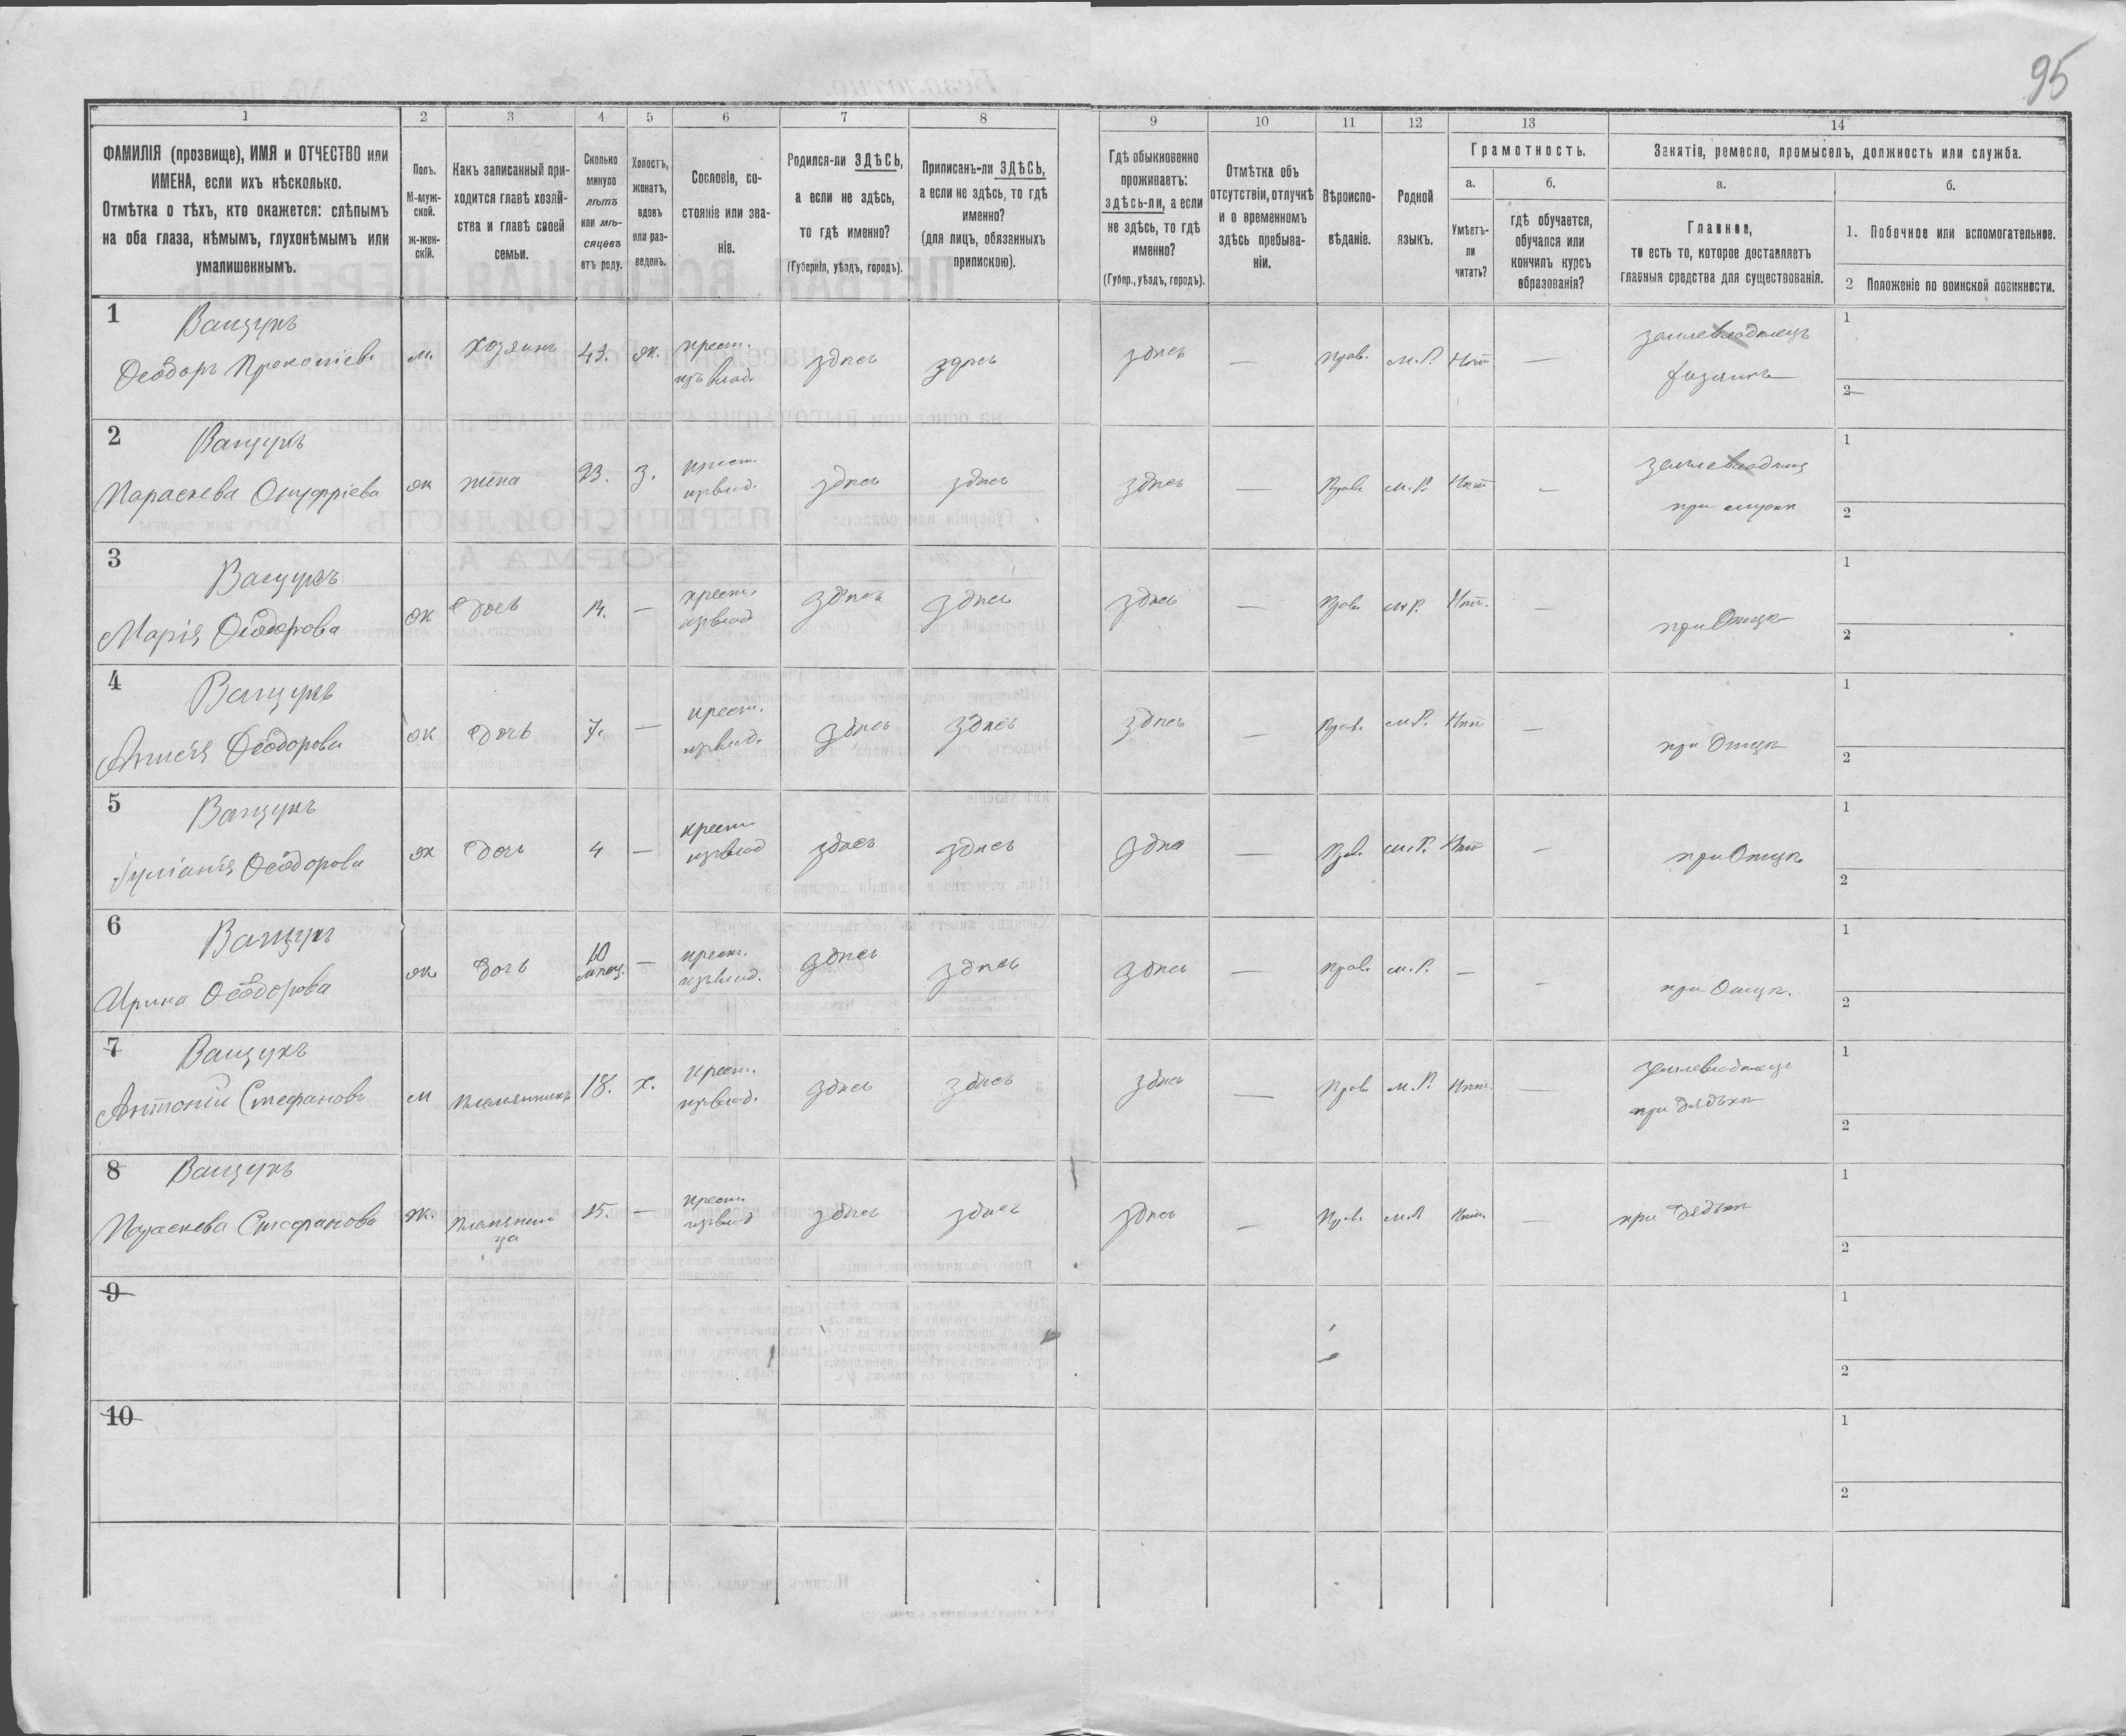 95
1 2 3 4 5 6 7 8 9 10 11 12 13 14
ФАМИЛІЯ (прозвище), ИМЯ и ОТЧЕСТВО или
ИМЕНА, если ихъ нѣсколько.
Отмѣтка о тѣхъ, кто окажется: слѣпымъ
на оба глаза, нѣмымъ, глухонѣмымъ или
умалишеннымъ.
Полъ.
М-муж-
ской.
ж-жен-
скій.
Какъ записанный при-
ходится главѣ хозяй-
ства и главѣ своей
семьи.
Сколько
минуло
лѣтъ
или мѣ-
сяцевъ
отъ роду.
Холостъ,
женатъ,
вдовъ
или раз-
веденъ.
Сословіе, со-
стояніе или зва-
ніе.
Родился-ли ЗДѢСЬ,
а если не здѣсь,
то гдѣ именно?
(Губернія, уѣздъ, городъ).
Приписанъ-ли ЗДѢСЬ,
а если не здѣсь, то гдѣ
именно?
(для лицъ, обязанныхъ
припискою).
Гдѣ обыкновенно
проживаетъ:
здѣсь-ли, а если
не здѣсь, то гдѣ
именно?
(Губер., уѣздъ, городъ).
Отмѣтка объ
отсутствіи, отлучкѣ
и о временномъ
здѣсь пребыва-
ніи.
Вѣроиспо-
вѣданіе.
Родной
языкъ.
Грамотность.
а.
Умѣетъ-
ли
читать?
б.
гдѣ обучается,
обучался или
кончилъ курсъ
образованія?
Занятія, ремесло, промыселъ, должность или служба.
а.
Главное,
то есть то, которое доставляетъ
главныя средства для существованія.
б.
1. Побочное или вспомогательное.
2 Положеніе по воинской повинности.
1 Ващукъ
Ѳеодоръ Прокопіевъ
м. хозяинъ 43. ж. крест.
изъ влад. здѣсь здѣсь здѣсь — Прав. М.Р. Нѣтъ — землевладѣлецъ
хозяинъ
1
2
2 Ващукъ
Параскева Онуфріева
ж жена 23. з. крест.
изъ влад. здѣсь здѣсь здѣсь — Прав. М.Р. Нѣтъ —
при мужѣ
1
2
3 Ващукъ
Марія Ѳеодорова
ж дочь — крест.
изъ влад здѣсь здѣсь здѣсь — Прав. М.Р. Нѣт. — при Отцѣ
1
2
4 Ващукъ
Ѳеодорова
ж дочь 7. — крест.
изъ влад. здѣсь здѣсь здѣсь — Прав. М.Р. Нѣт — при Отцѣ
1
2
5 Ващукъ
Іуліанія Ѳеодорова
ж дочь 4 — крест.
изъ влад здѣсь здѣсь здѣсь — Прав. М.Р. Нѣт — при Отцѣ
1
2
6 Ващукъ
Ирина Ѳеодорова
ж. дочь 10
мѣсяц. — крест.
изъ влад. здѣсь здѣсь здѣсь — Прав. М.Р. — — при Отцѣ.
1
2
7 Ващукъ
Антоній Стефановъ
м племянникъ 18. х. крест.
изъ влад. здѣсь здѣсь здѣсь — Прав. М.Р. Нѣт. — землевладѣлецъ
при дядькѣ
1
2
8 Ващукъ
Параскева Стефанова
ж. племянни
ца 15. — крест.
изъ влад здѣсь здѣсь здѣсь — Прав. М.Р. Нѣт. — при дядькѣ
1
2
9
1
2
10
1
2